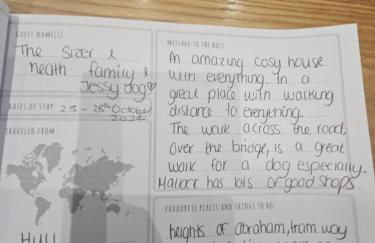 GUEST NAME(S)
The Sizer &
Neath family &
Jessy dog
DATES OF STAY 25 - 28th October
2024
TRAVELED FROM
Hull
MESSAGE TO THE HOST
An amazing cosy house
with everything. In a
great place with walking
distance to everything.
The walk across the road,
over the bridge, is a great
walk for a dog especially.
Matlock has lots of good shops.
FAVOURITE PLACES AND THINGS TO DO:
heights of abraham, tram way